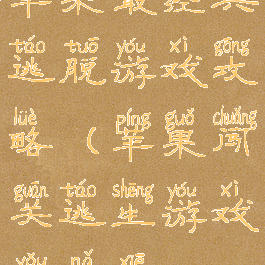 苹果最经典
táo tuō yóu xì gōng
逃脱游戏攻
lüè píng guǒ chuǎng
略(苹果闯
guān táo shēng yóu xì
关逃生游戏
yǒu nǎ xiē